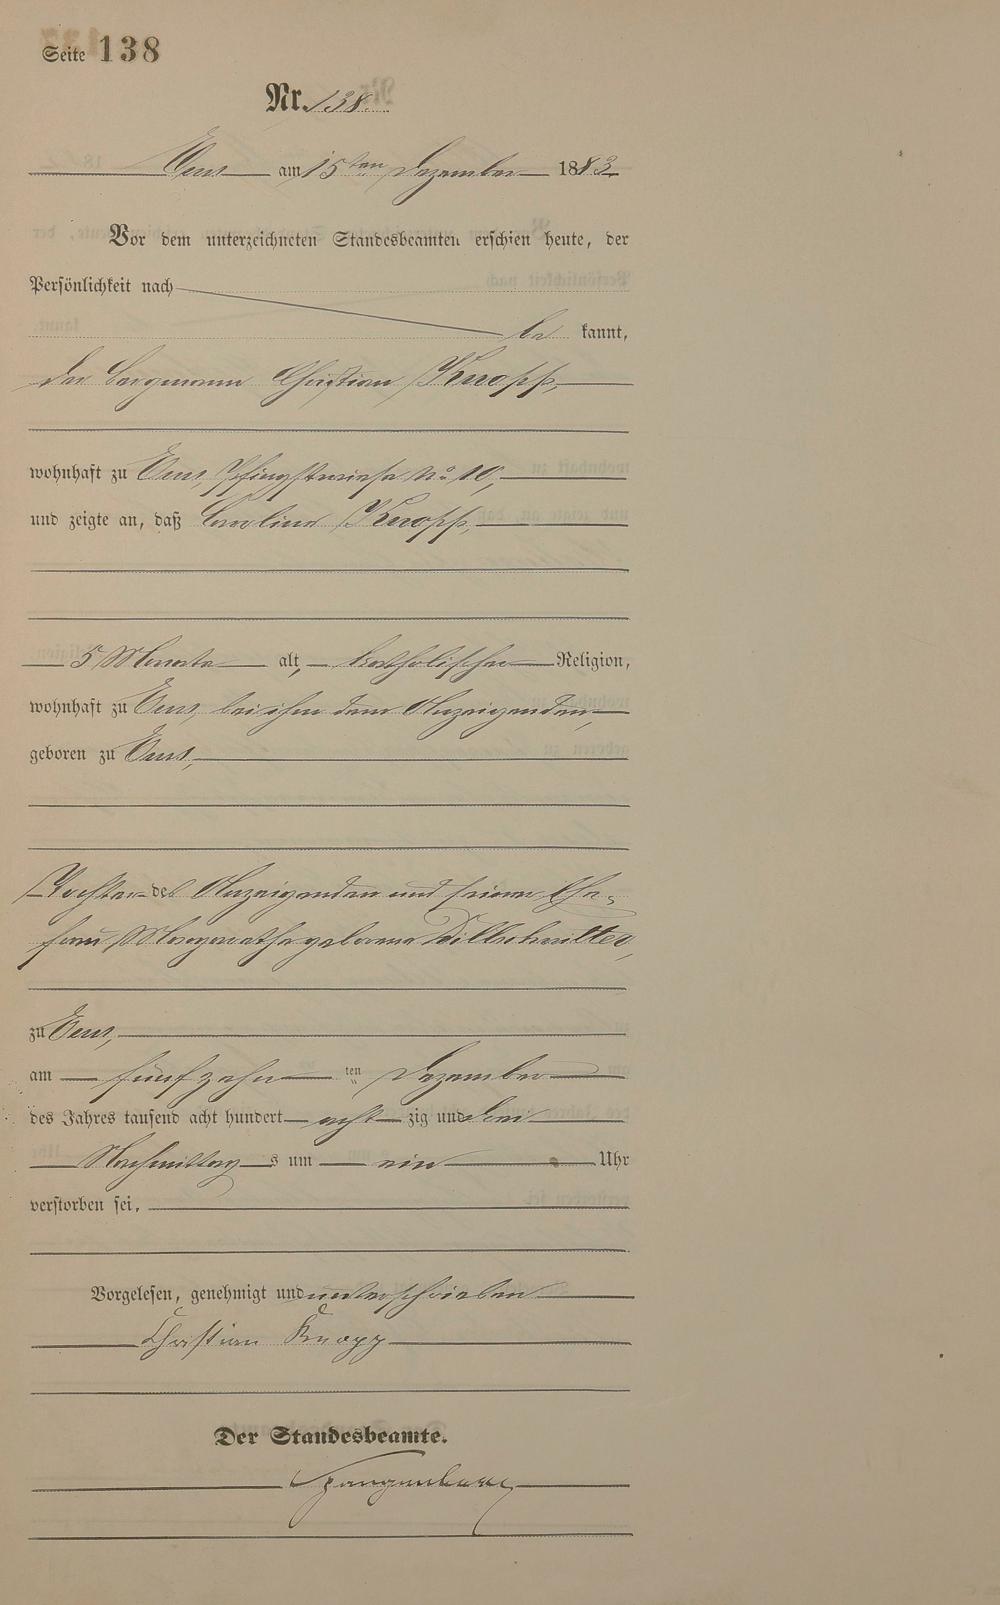 Seite 138
Nr. 138.
Ems am 15ten Dezember 1883.
Vor dem unterzeichneten Standesbeamten erschien heute, der
Persönlichkeit nach
be kannt,
der Bergmann Christian Knopp,
wohnhaft zu Ems, Pfingstwiese No 10,
und zeigte an, daß Caroline Knopp,
5 Monate alt, katholischer Religion,
wohnhaft zu Ems, bei ihm dem Anzeigenden,
geboren zu Ems,
Tochter des Anzeigenden und seiner Ehe-
frau Margarethe geborene Dillschnitter,
zu Ems,
am fünfzehn ten Dezember
des Jahres tausend acht hundert acht zig und drei
Nachmittag s um ein Uhr
verstorben sei.
Vorgelesen, genehmigt und unterschrieben
Christian Knopp
Der Standesbeamte.
Spangenberg